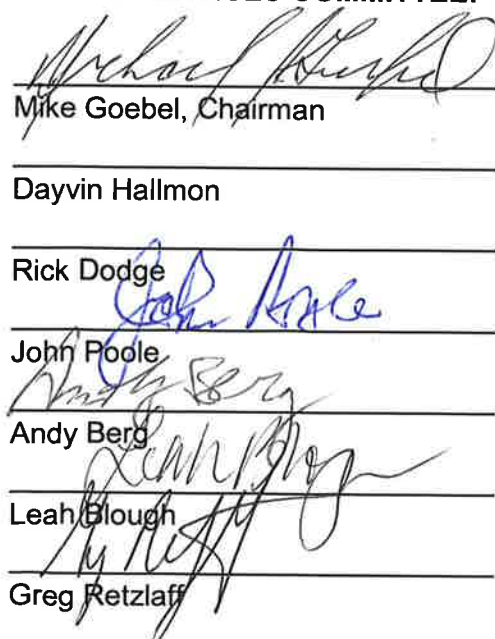 COMMITTEE:
Mike Goebel, Chairman
Dayvin Hallmon
Rick Dodge
John Poole
John Poole
Andy Berg
Andy Berg
Leah Blough
Leah Blough
Greg Retzlaff